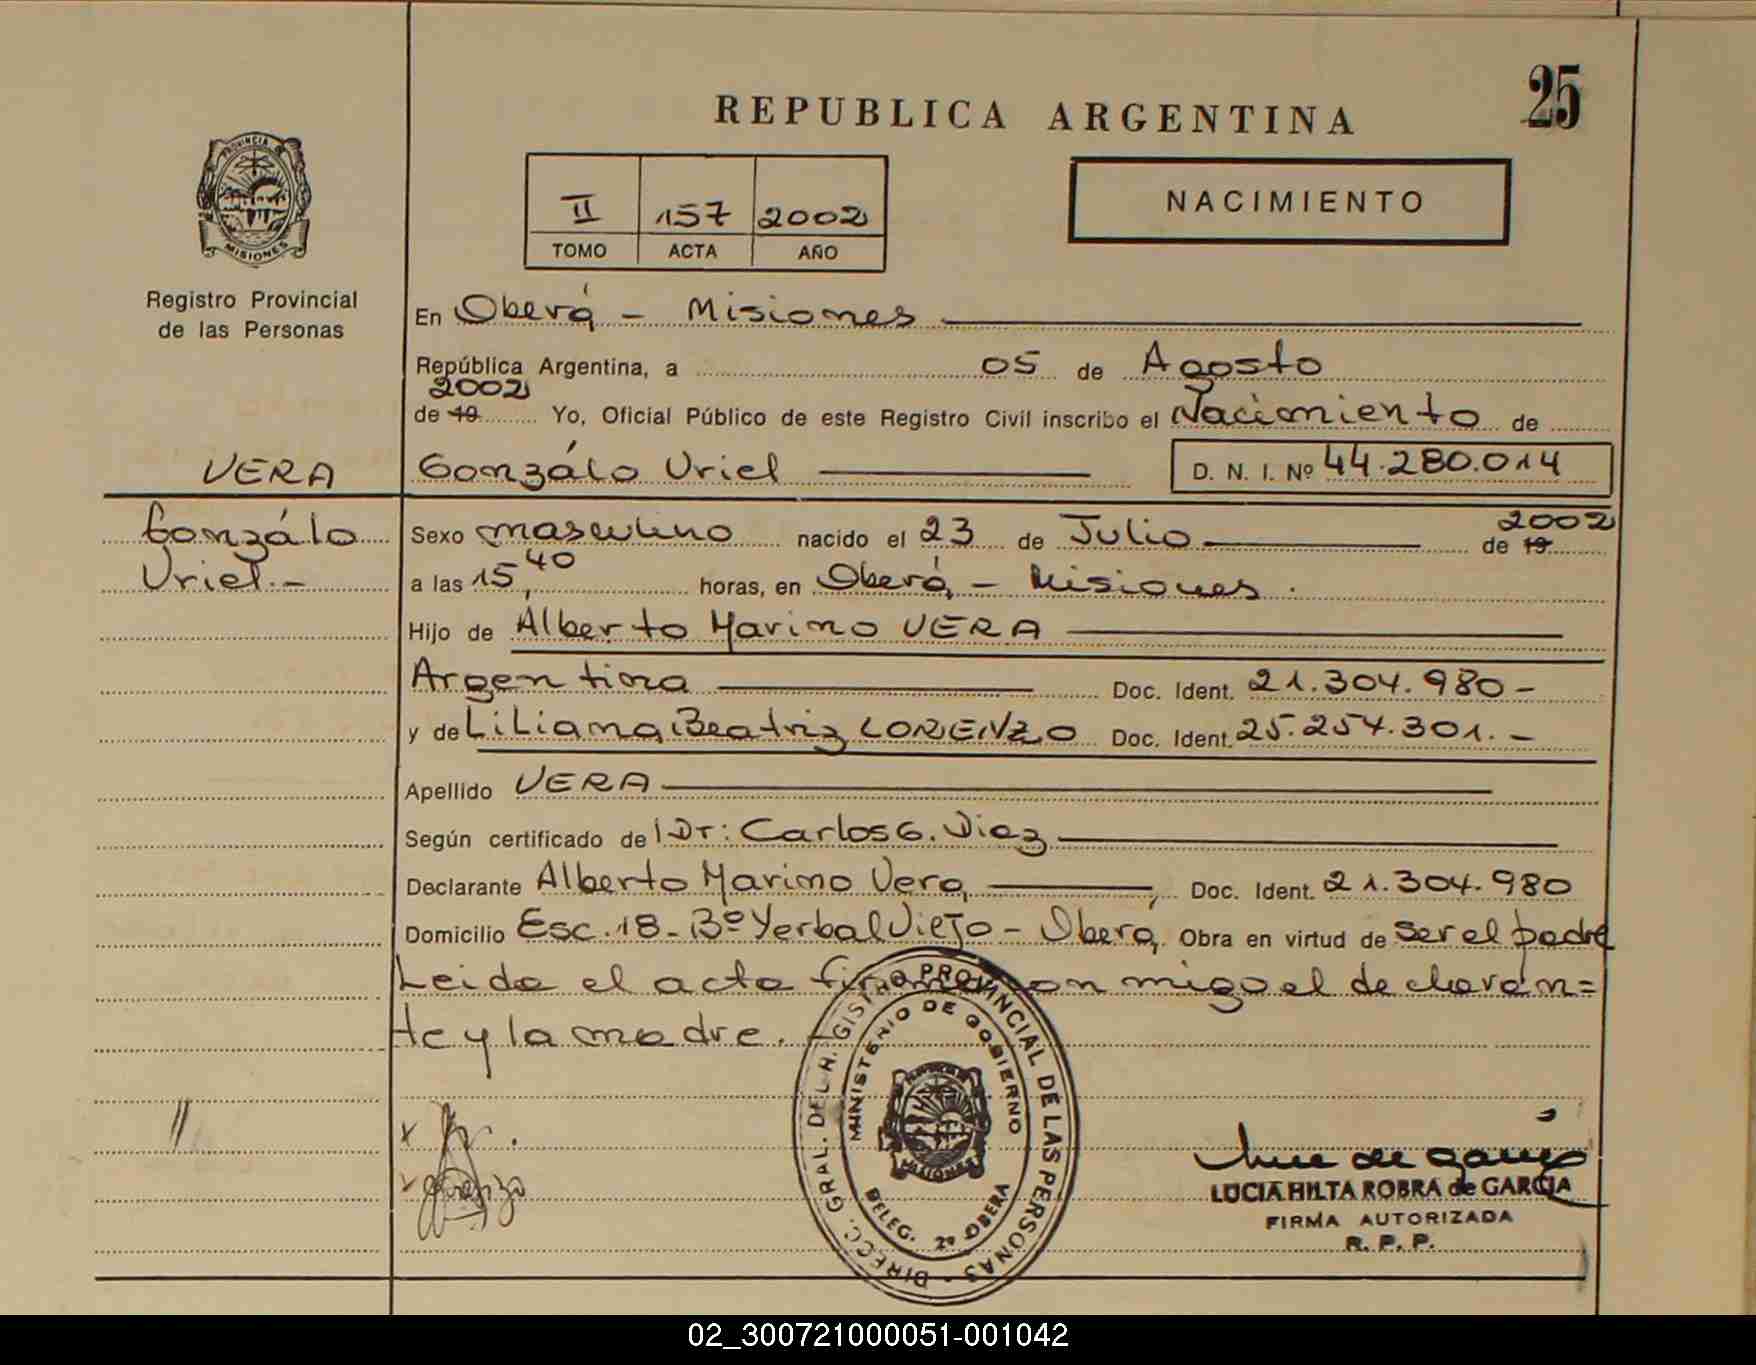 25
REPUBLICA ARGENTINA
PROVINCIA DE
MISIONES
Registro Provincial
de las Personas
II 157 2002
TOMO ACTA AÑO
NACIMIENTO
En Oberá - Misiones
República Argentina, a 05 de Agosto
2002
de 19 Yo, Oficial Público de este Registro Civil inscribo el Nacimiento de
VERA
Gonzálo Uriel D. N. I. Nº 44.280.014
Gonzálo
Uriel.-
2002
Sexo masculino nacido el 23 de Julio de 19
a las 15,40 horas, en Oberá - Misiones.
Hijo de Alberto Marino VERA
Argentina Doc. Ident. 21.304.980-
y de Liliana Beatriz LORENZO Doc. Ident. 25.254.301.-
Apellido VERA
Según certificado de Dr: Carlos G. Diez
Declarante Alberto Marino Vera, Doc. Ident. 21.304.980
Domicilio Esc. 18 - Bº Yerbal Viejo - Oberá, Obra en virtud de ser el padre
Leida el acta firma con migo el declaran=
te y la madre.-
DIRECC. GRAL. DEL R. PROVINCIAL DE LAS PERSONAS
MINISTERIO DE GOBIERNO
MISIONES
DELEG. 2º OBERA
LUCIA HILTA ROBRA de GARCIA
FIRMA AUTORIZADA
R. P. P.
02_300721000051-001042